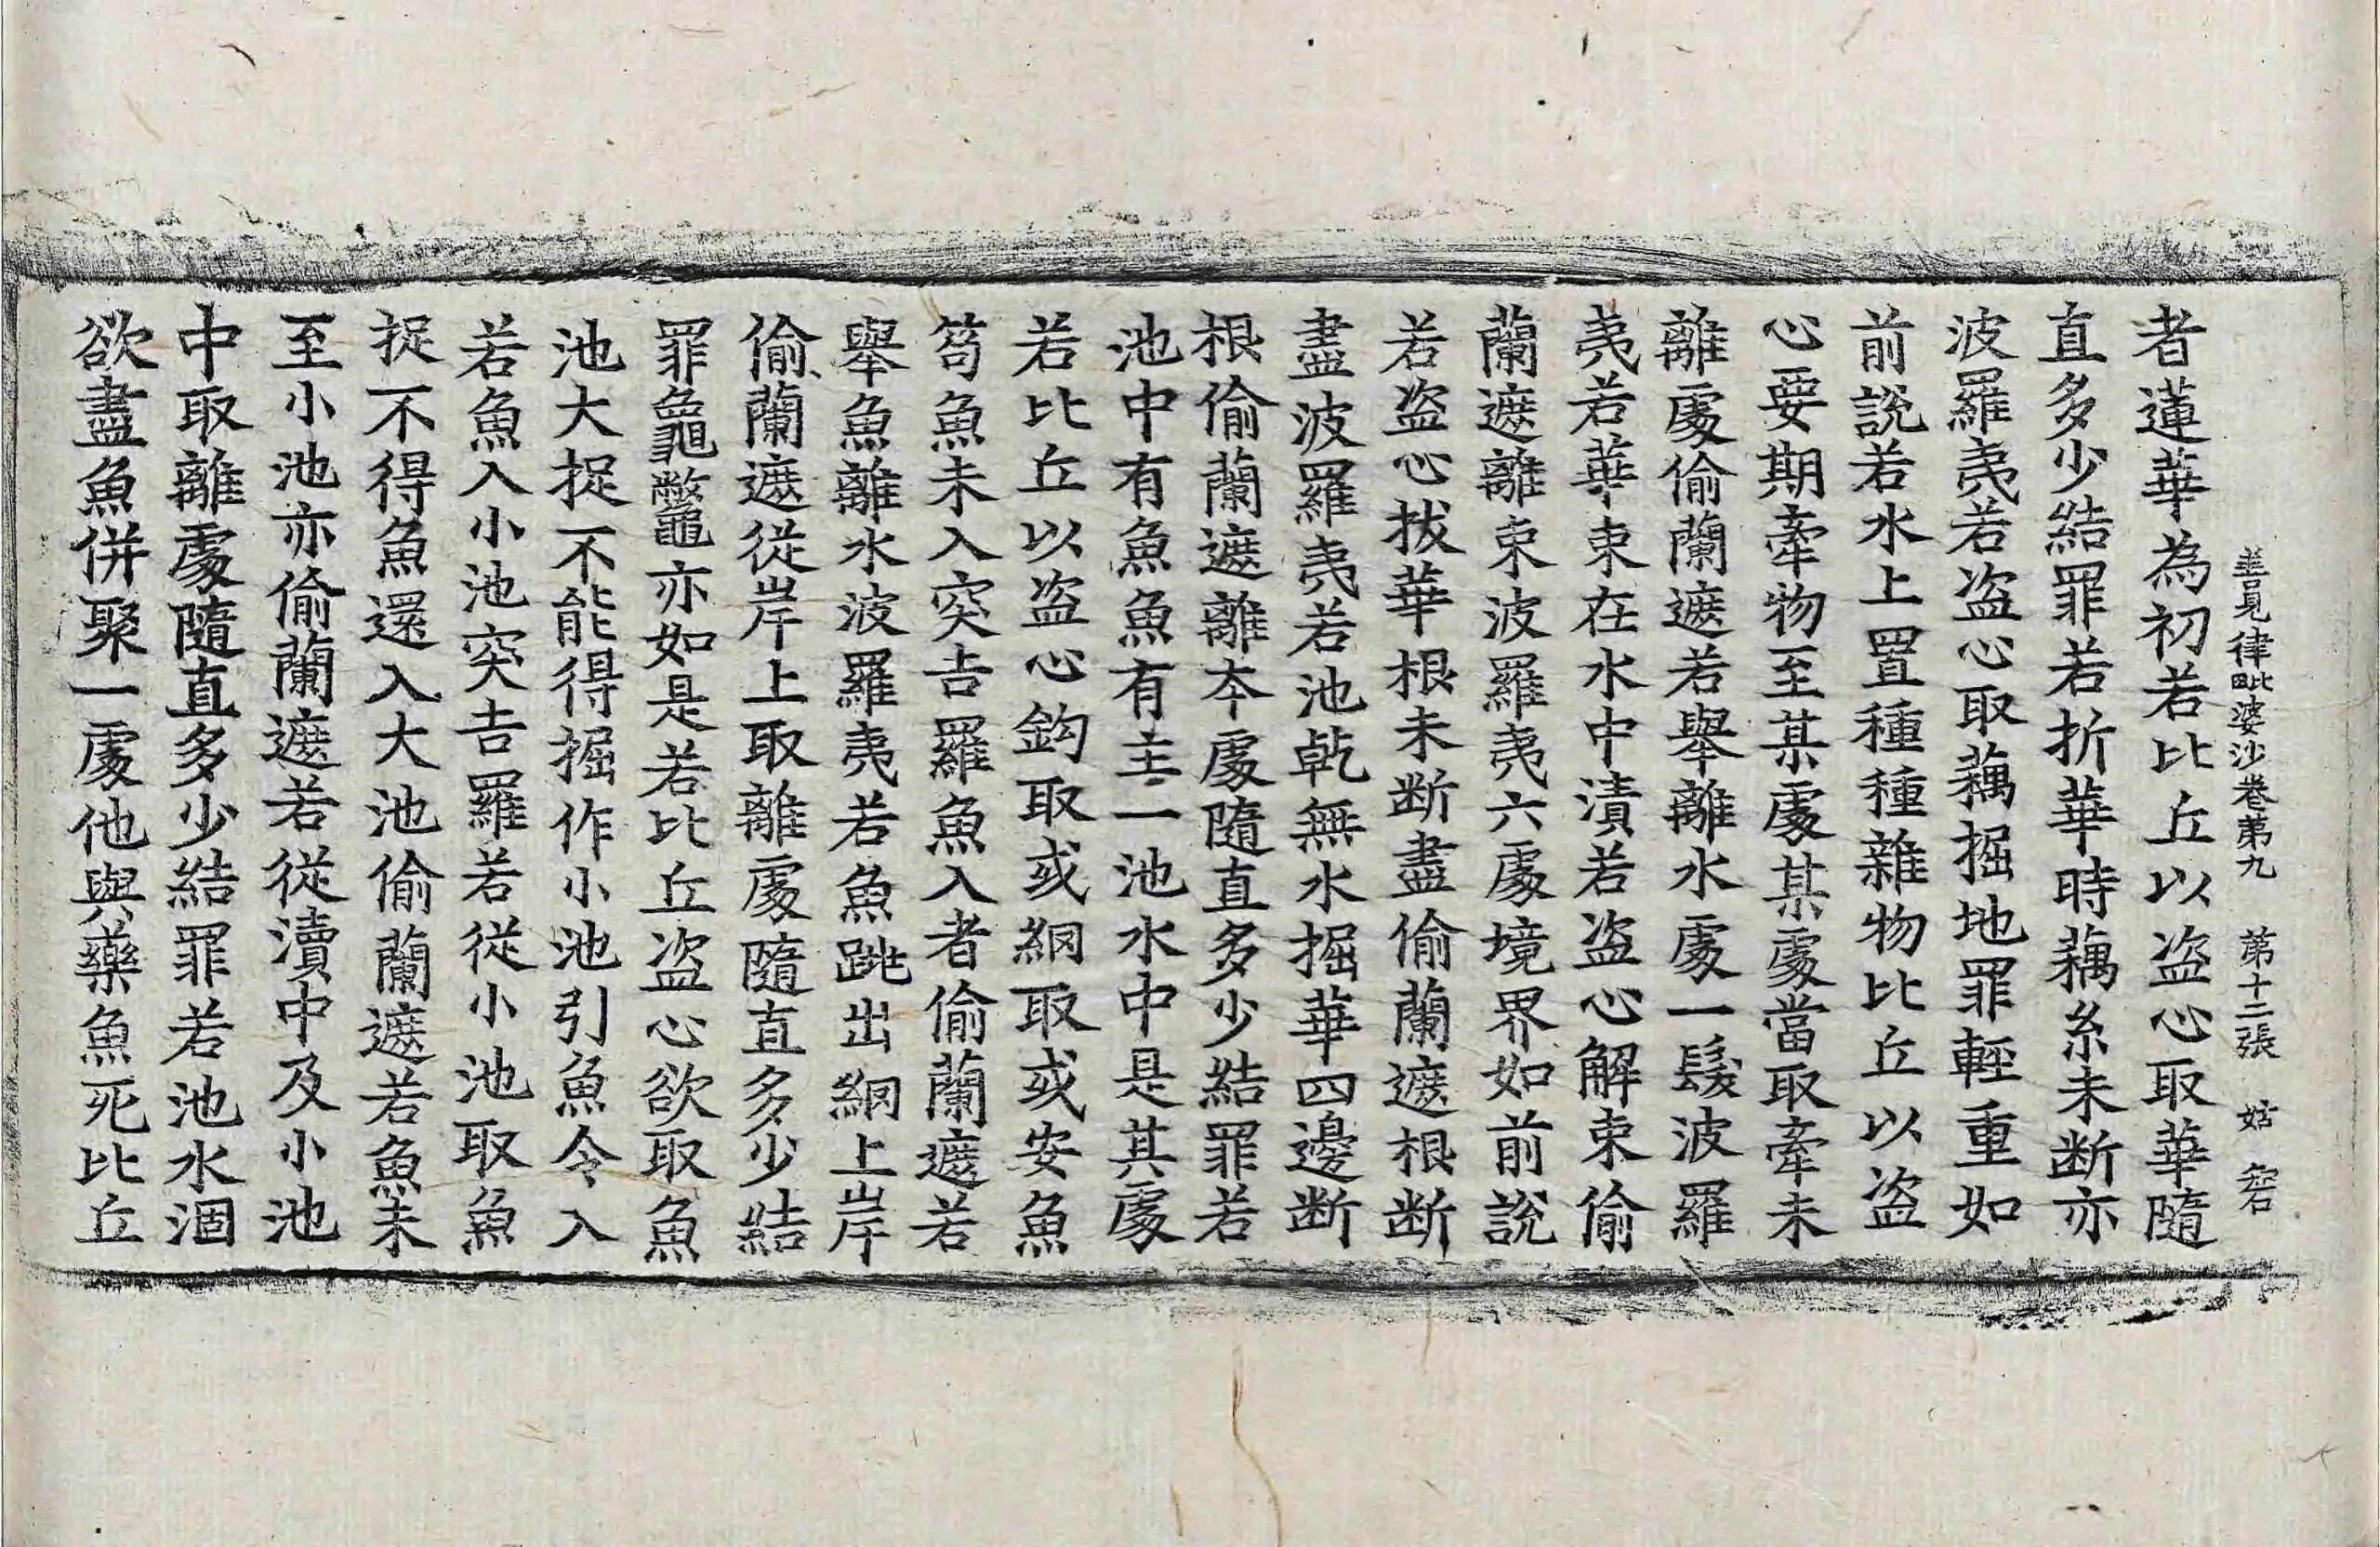 善見律毗婆沙卷第九 第十二張 姑
者蓮華為初若比丘以盗心取華隨
直多少結罪若折華時藕糸未断亦
波羅夷若盗心取藕掘地罪輕重如
前說若水上置種種雜物比丘以盗
心要期牽物至某處某處當取牽未
離處偷蘭遮若舉離水處一髮波羅
夷若華束在水中漬若盗心解束偷
蘭遮離束波羅夷六處境界如前說
若盗心拔華根未断盡偷蘭遮根断
盡波羅夷若池乾無水掘華四邊断
根偷蘭遮離夲處隨直多少結罪若
池中有魚魚有主一池水中是其處
若比丘以盗心鈎取或網取或安魚
笱魚未入突吉羅魚入者偷蘭遮若
舉魚離水波羅夷若魚跳出網上岸
偷蘭遮從岸上取離處隨直多少結
罪龜鼈亦如是若比丘盗心欲取魚
池大捉不能得掘作小池引魚令入
若魚入小池突吉羅若從小池取魚
捉不得魚還入大池偷蘭遮若魚未
至小池亦偷蘭遮若從瀆中及小池
中取離處隨直多少結罪若池水涸
欲盡魚併聚一處他與藥魚死比丘